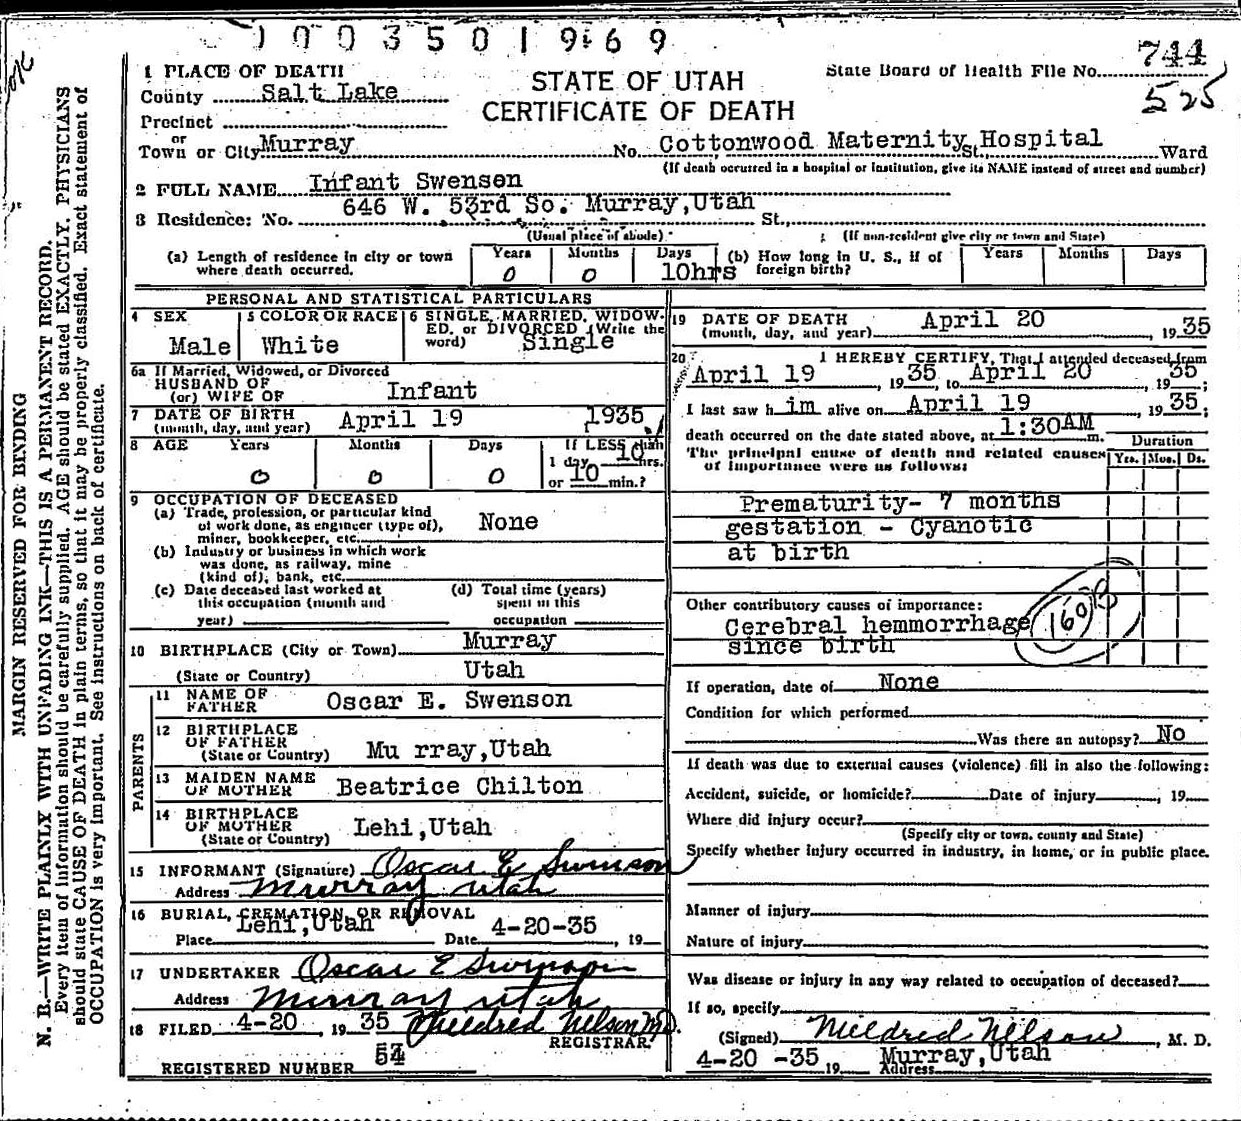 1 0 0 3 5 0 1 9 6 9
744
525
STATE OF UTAH
CERTIFICATE OF DEATH
State Board of Health File No.
1 PLACE OF DEATH
County Salt Lake
Precinct
or
Town or City Murray No. Cottonwood Maternity Hospital St., Ward
(If death occurred in a hospital or institution, give its NAME instead of street and number)
2 FULL NAME Infant Swensen
3 Residence: No. 646 W. 53rd So. Murray,Utah St.,
(Usual place of abode) (If non-resident give city or town and State)
(a) Length of residence in city or town where death occurred. Years 0 Months 0 Days 10hrs
(b) How long in U. S., if of foreign birth? Years Months Days
PERSONAL AND STATISTICAL PARTICULARS
4 SEX Male
5 COLOR OR RACE White
6 SINGLE, MARRIED, WIDOWED, or DIVORCED (Write the word) Single
6a If Married, Widowed, or Divorced
HUSBAND OF
(or) WIFE OF Infant
7 DATE OF BIRTH
(month, day, and year) April 19 1935
8 AGE Years 0 Months 0 Days 0
If LESS than
1 day 10 hrs.
or 10 min.?
9 OCCUPATION OF DECEASED
(a) Trade, profession, or particular kind
of work done, as engineer (type of),
miner, bookkeeper, etc. None
(b) Industry or business in which work
was done, as railway, mine
(kind of), bank, etc.
(c) Date deceased last worked at
this occupation (month and
year)
(d) Total time (years)
spent in this
occupation
10 BIRTHPLACE (City or Town) Murray
(State or Country) Utah
PARENTS
11 NAME OF
FATHER Oscar E. Swenson
12 BIRTHPLACE
OF FATHER
(State or Country) Mu rray,Utah
13 MAIDEN NAME
OF MOTHER Beatrice Chilton
14 BIRTHPLACE
OF MOTHER
(State or Country) Lehi,Utah
15 INFORMANT (Signature) Oscar E Swenson
Address Murray Utah
16 BURIAL, CREMATION, OR REMOVAL
Place Lehi,Utah Date 4-20-35, 19
17 UNDERTAKER Oscar E Swenson
Address Murray Utah
18 FILED 4-20, 1935 Mildred Nelson M.D.
REGISTRAR.
REGISTERED NUMBER 54
19 DATE OF DEATH
(month, day, and year) April 20 1935
20 I HEREBY CERTIFY, That I attended deceased from
April 19, 1935 to April 20, 1935;
I last saw him alive on April 19, 1935;
death occurred on the date stated above, at 1:30AM m.
The principal cause of death and related causes
of importance were as follows:
Duration
Yrs. Mos. Ds.
Prematurity- 7 months
gestation - Cyanotic
at birth
Other contributory causes of importance:
Cerebral hemmorrhage
since birth
160
If operation, date of None
Condition for which performed
Was there an autopsy? No
If death was due to external causes (violence) fill in also the following:
Accident, suicide, or homicide? Date of injury, 19
Where did injury occur?
(Specify city or town, county and State)
Specify whether injury occurred in industry, in home, or in public place.
Manner of injury
Nature of injury
Was disease or injury in any way related to occupation of deceased?
If so, specify
(Signed) Mildred Nelson, M. D.
4-20 -35 19 Murray,Utah
Address
MARGIN RESERVED FOR BINDING
N. B.—WRITE PLAINLY WITH UNFADING INK—THIS IS A PERMANENT RECORD.
Every item of information should be carefully supplied. AGE should be stated EXACTLY. PHYSICIANS
should state CAUSE OF DEATH in plain terms, so that it may be properly classified. Exact statement of
OCCUPATION is very important. See instructions on back of certificate.